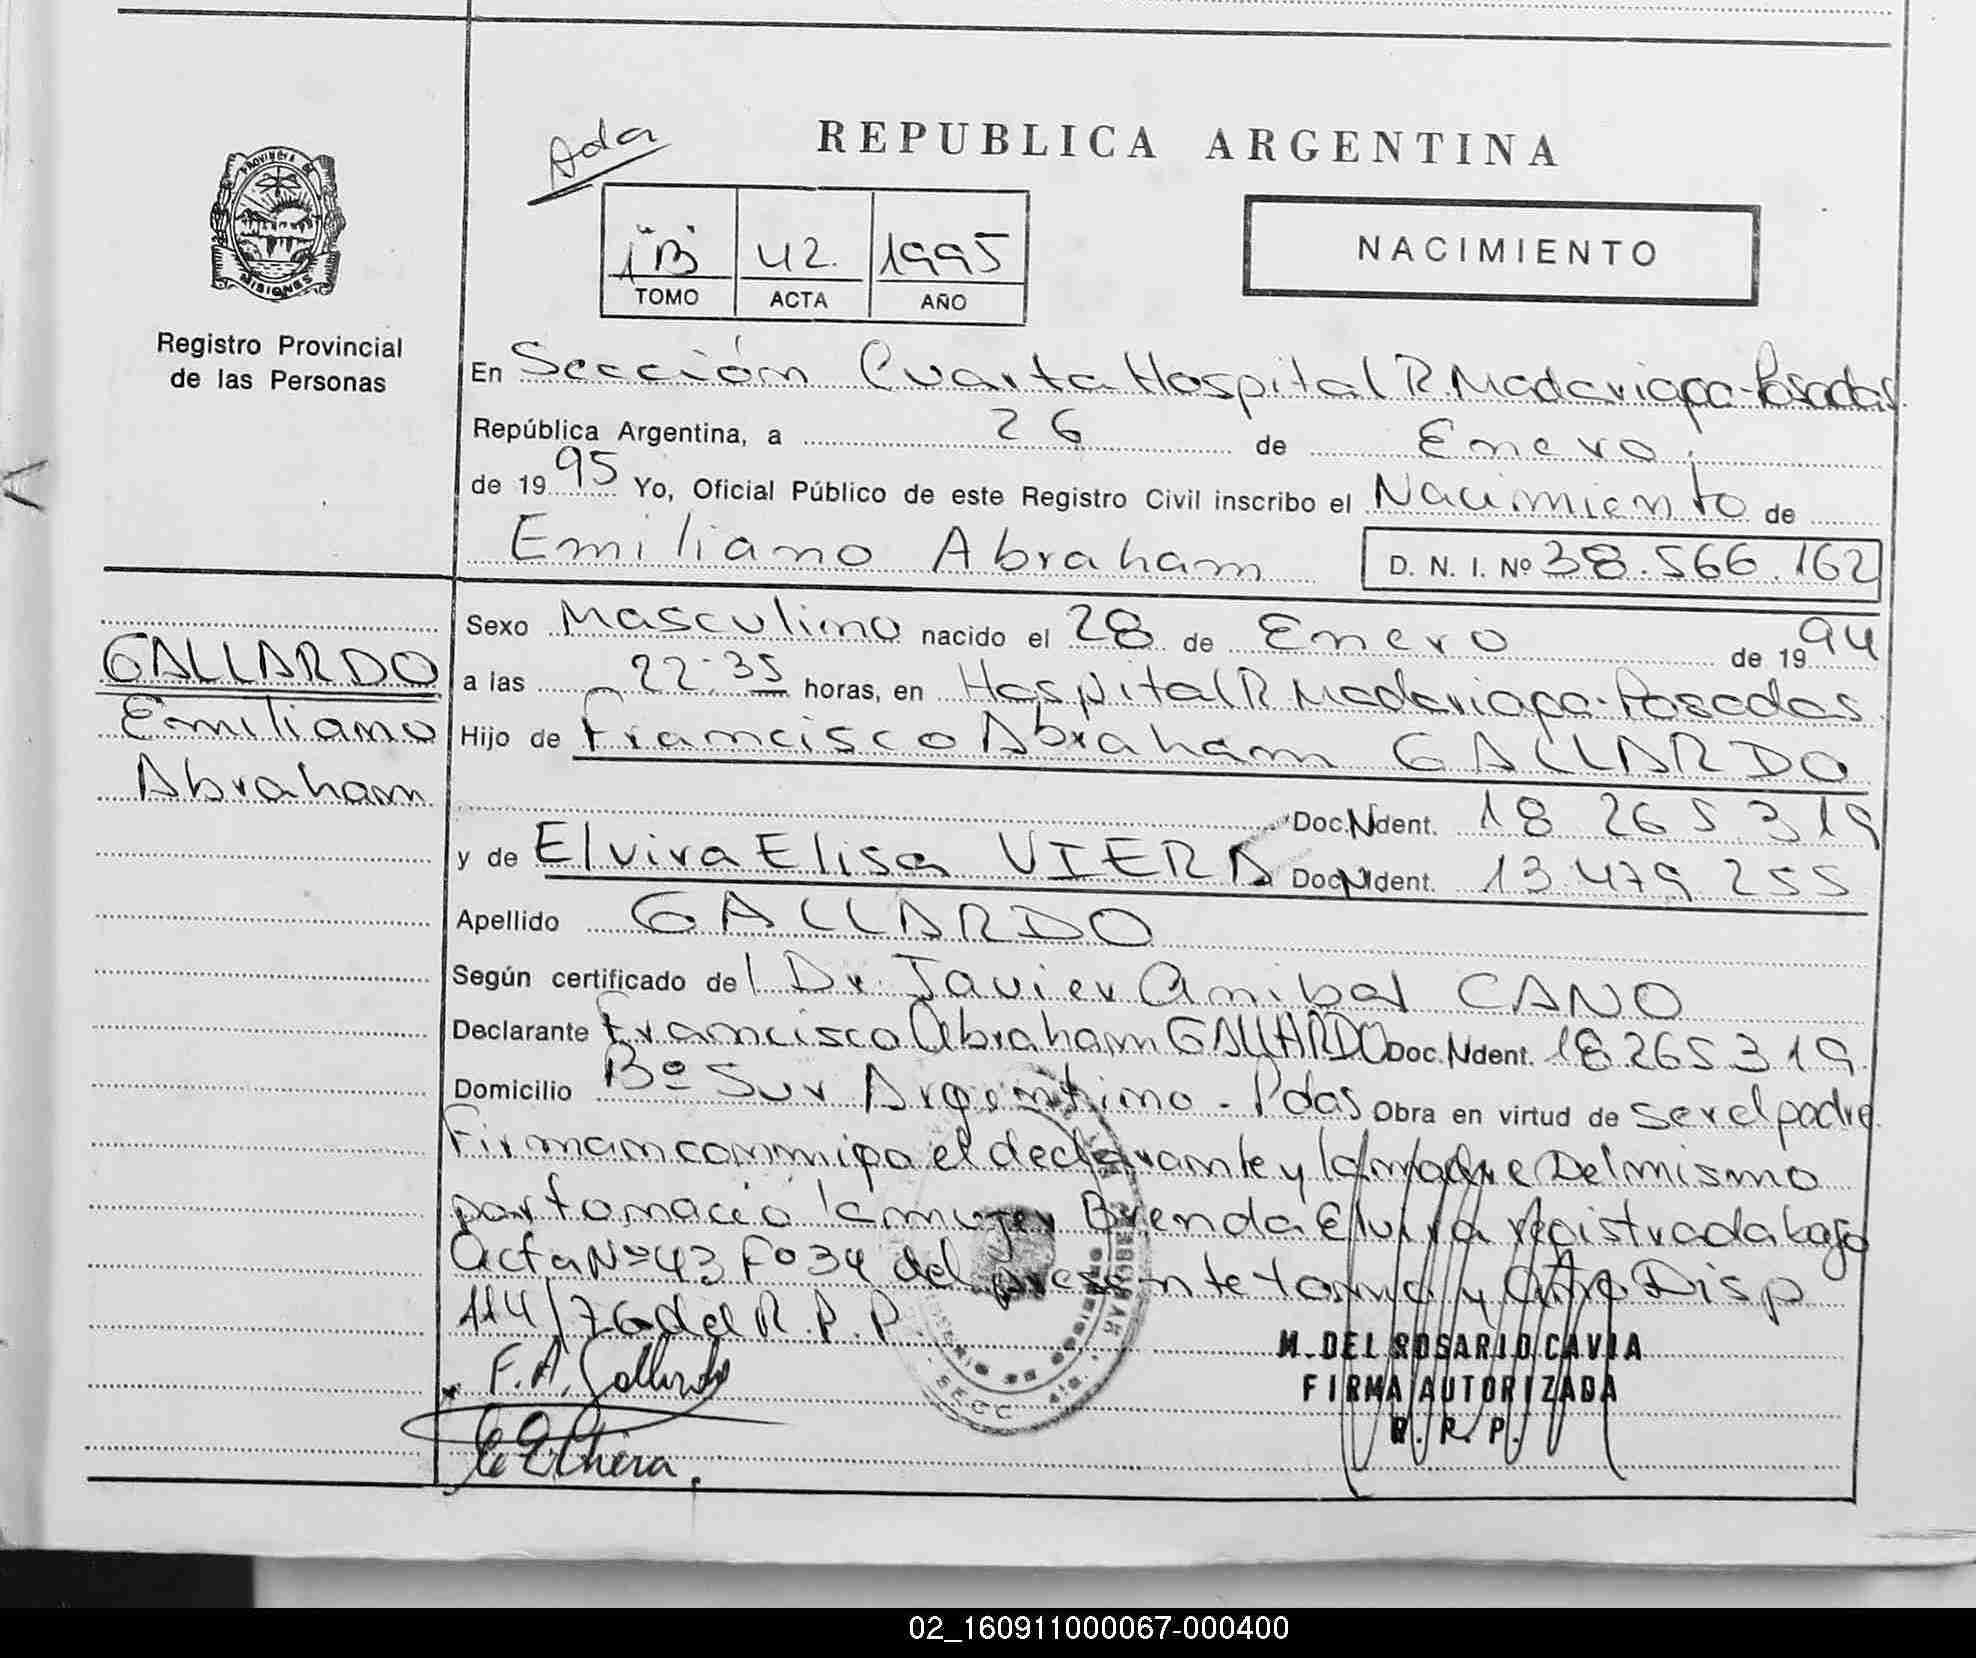 REPUBLICA ARGENTINA
Ada
1 "B" 42. 1995
TOMO ACTA AÑO
NACIMIENTO
PROVINCIA DE MISIONES
Registro Provincial
de las Personas
En Sección Cuarta Hospital R. Madariaga-Posadas
República Argentina, a 26 de Enero
de 1995 Yo, Oficial Público de este Registro Civil inscribo el Nacimiento de
Emiliano Abraham D. N. I. Nº 38.566.162
GALLARDO
Emiliano
Abraham
Sexo Masculino nacido el 28 de Enero de 1994
a las 22:35 horas, en Hospital R Madariaga-Posadas
Hijo de Francisco Abraham GALLARDO
Doc.Ndent. 18 265 319
y de Elvira Elisa VIERA Doc.Ndent. 13.479 255
Apellido GALLARDO
Según certificado del Dr. Javier Anibal CANO
Declarante Francisco Abraham GALLARDO Doc.Ndent. 18 265 319
Domicilio Bº Sur Argentino - Pdas Obra en virtud de ser el padre
Firman conmigo el declarante y la madre Del mismo
parto nació la mujer Brenda Elvira registrada bajo
Acta Nº 43 Fº 34 del presente tomo y año Disp
114/76 del R.P.P.
F.A. Gallardo
M. DEL ROSARIO CAVIA
FIRMA AUTORIZADA
R. R. P.
02_160911000067-000400